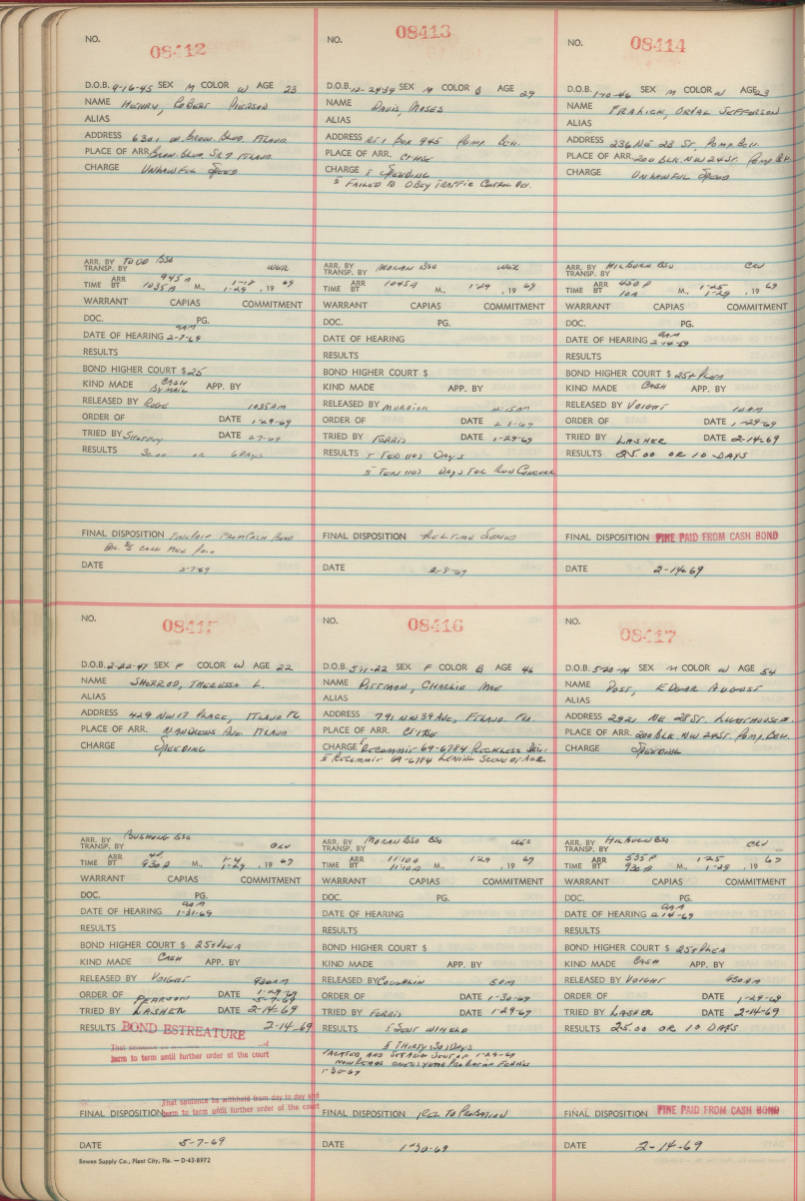 NO. 08412
D.O.B. 9-16-45 SEX M COLOR W AGE 23
NAME Henry, Robert Pierson
ALIAS
ADDRESS 6301 W. Brow. Blvd. Ftlaud
PLACE OF ARR. Brow. Blvd, SR 7 Ftlaud
CHARGE Unlawful Speed
ARR. BY Todd BSO
TRANSP. BY
TIME ARR 945 A
BT 1035 A M., 1-29, 19 69
WARRANT CAPIAS COMMITMENT
DOC. PG.
9AM
DATE OF HEARING 2-7-69
RESULTS
BOND HIGHER COURT $ 25
KIND MADE Cash By mail APP. BY
RELEASED BY 1035AM
ORDER OF DATE 1-29-69
TRIED BY DATE 2-7-69
RESULTS 30.00 or 6 Days
FINAL DISPOSITION Fine Paid From Cash Bond
Bal. $5 Cash Also Paid
DATE 2-7-69
NO. 08413
D.O.B. 12-24-39 SEX M COLOR B AGE 29
NAME Davis, Moses
ALIAS
ADDRESS Rt 1 Box 945 Pomp. Bch.
PLACE OF ARR. CthSe
CHARGE S Speeding
S Failed to Obey Traffic Control Dev.
ARR. BY Moran BSO
TRANSP. BY
TIME ARR
BT 1045A M., 1-29, 19 69
WARRANT CAPIAS COMMITMENT
DOC. PG.
DATE OF HEARING
RESULTS
BOND HIGHER COURT $
KIND MADE APP. BY
RELEASED BY
ORDER OF DATE
TRIED BY Ferris DATE 1-29-69
RESULTS S Ten (10) Days
S Ten (10) Days To Run Concur
FINAL DISPOSITION Rel Time Served
DATE
NO. 08414
D.O.B. 1-10-46 SEX M COLOR W AGE 23
NAME Fralick, Orval Jefferson
ALIAS
ADDRESS 236 NE 28 St, Pomp. Bch.
PLACE OF ARR. 200 Blk. NW 24 St. Pomp. Bh
CHARGE Unlawful Speed
ARR. BY Hilburn BSO CRV
TRANSP. BY
TIME ARR 450 P 1-25
BT 10A M., 1-29, 19 69
WARRANT CAPIAS COMMITMENT
DOC. PG.
9AM
DATE OF HEARING 2-14-69
RESULTS
BOND HIGHER COURT $ 25+ Plea
KIND MADE Cash APP. BY
RELEASED BY Voight 10 AM
ORDER OF DATE 1-29-69
TRIED BY Lasher DATE 2-14-69
RESULTS 25.00 or 10 Days
FINAL DISPOSITION FINE PAID FROM CASH BOND
DATE 2-14-69
NO. 08415
D.O.B. 2-22-47 SEX F COLOR W AGE 22
NAME Sherrod, Theressa L.
ALIAS
ADDRESS 429 NW 17 Place, Ftlaud Fl
PLACE OF ARR. N Andrews Ave. Ftlaud
CHARGE Speeding
ARR. BY Bushong BSO CRV
TRANSP. BY
TIME ARR
BT 930 A M., 1-29, 19 69
WARRANT CAPIAS COMMITMENT
DOC. PG.
9AM
DATE OF HEARING 1-31-69
RESULTS
BOND HIGHER COURT $ 25+ Plea
KIND MADE Cash APP. BY
RELEASED BY Voight 930AM
ORDER OF Pearson DATE 1-29-69 5-7-69
TRIED BY Lasher DATE 2-14-69
RESULTS BOND ESTREATURE 2-14-69
That sentence be
term to term until further order of the court
That sentence be withheld from day to day and
FINAL DISPOSITION term to term until further order of the court
DATE 5-7-69
Bowen Supply Co., Plant City, Fla. — D-43-8972
NO. 08416
D.O.B. 5-11-22 SEX F COLOR B AGE 46
NAME Pittman, Charlie Mae
ALIAS
ADDRESS 791 NW 39 Ave, Ftlaud. Fla.
PLACE OF ARR. CthSe
CHARGE Recommit 69-6784 Reckless Driv.
S Recommit 69-6784 Leaving Scene of Acc.
ARR. BY Moran BSO
TRANSP. BY
TIME ARR 1110A
BT 1110A M., 1-29, 19 69
WARRANT CAPIAS COMMITMENT
DOC. PG.
DATE OF HEARING
RESULTS
BOND HIGHER COURT $
KIND MADE APP. BY
RELEASED BY Coughlin 5PM
ORDER OF DATE 1-30-69
TRIED BY Ferris DATE 1-29-69
RESULTS S Sent Witheld
S Thirty (30) Days
Vacated and Set Aside Sent of 1-29-69
1-30-69
FINAL DISPOSITION Rel To Probation
DATE 1-30-69
NO. 08417
D.O.B. 5-20-14 SEX M COLOR W AGE 54
NAME Post, Edgar August
ALIAS
ADDRESS 2921 NE 28 St. Lighthouse Pt.
PLACE OF ARR. 200 Blk. NW 24 St. Pomp. Bch.
CHARGE Speeding
ARR. BY Hilburn BSO CRV
TRANSP. BY
TIME ARR 535 P 1-25
BT 930 A M., 1-29, 19 69
WARRANT CAPIAS COMMITMENT
DOC. PG.
9AM
DATE OF HEARING 2-14-69
RESULTS
BOND HIGHER COURT $ 25+ Plea
KIND MADE Cash APP. BY
RELEASED BY Voight 930AM
ORDER OF DATE 1-29-69
TRIED BY Lasher DATE 2-14-69
RESULTS 25.00 or 10 Days
FINAL DISPOSITION FINE PAID FROM CASH BOND
DATE 2-14-69